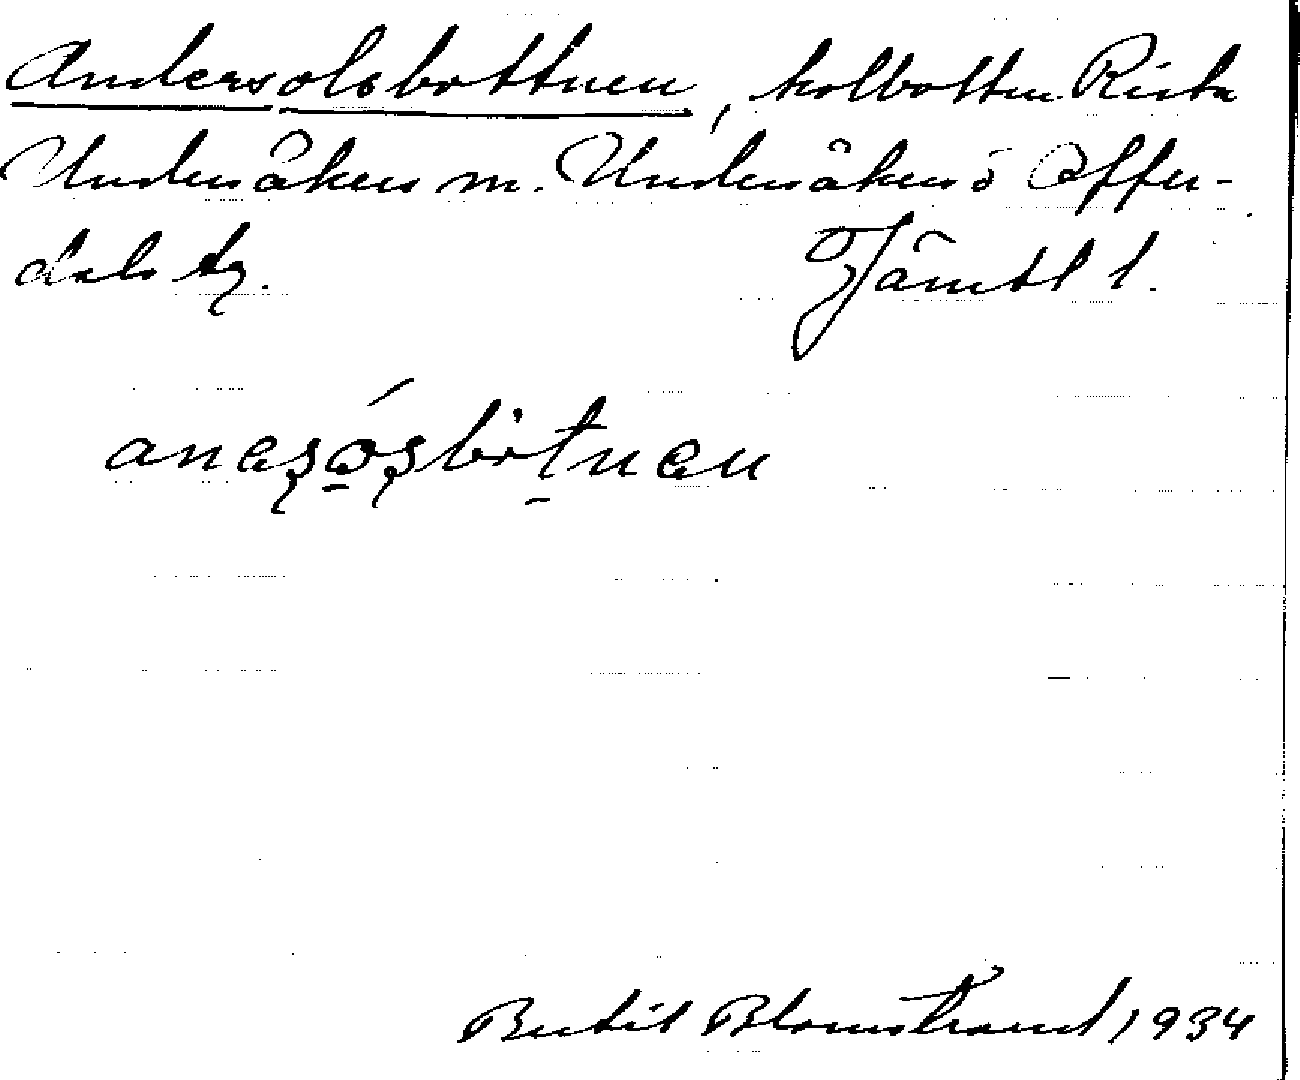 Andersolsbottnen, kolbotten Rista
Undersåkers sn. Undersåkers o Offer-
dals tg. Jämtl l.
Bertil Blomstrand, 1934